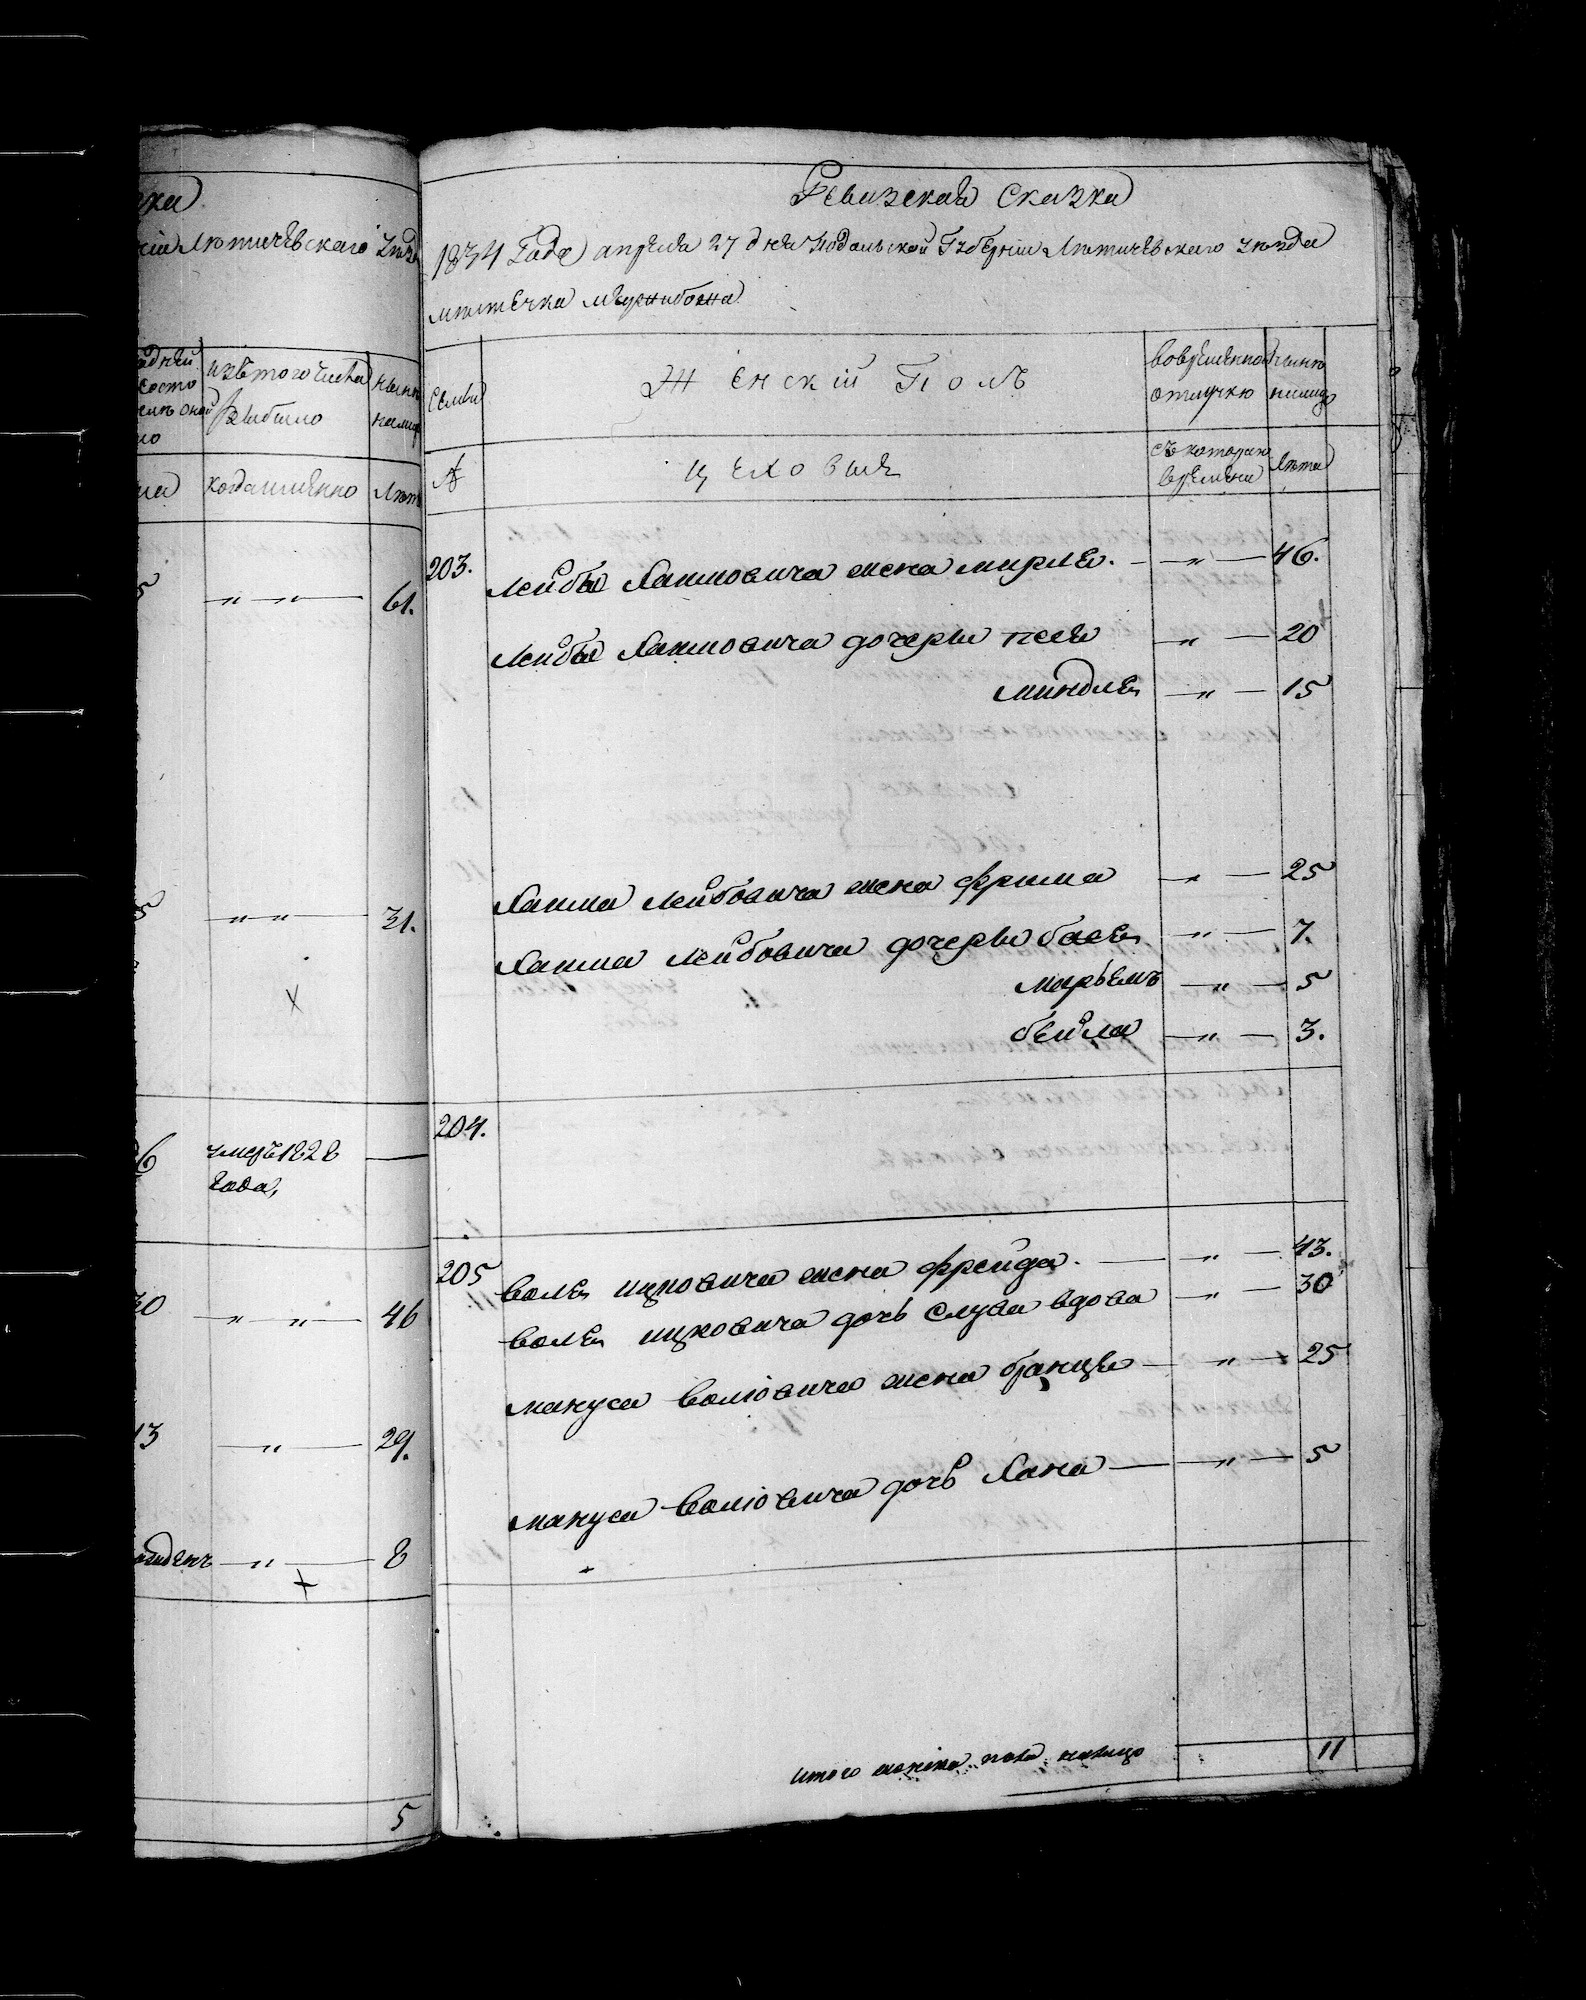 ска
нiи Лѣтичевскаго Уѣзд
изъ того числа
выбыло
когда имянно
Лѣт
„ „ — 61.
5 „ „ — 31.
6 умеръ 1828 —
года,
30 „ „ — 46
13 „ — 29.
„ — 8
5
Ревизская Сказка
1834 Года апреля 27 дня Подольской Губернiи Лѣтичевскаго уѣзда
мѣстечка Меджибожа
Семьи
Женскiй Полъ
вовремянной
отлучке
ныне
налицо
№
цеховые
съ котораго
времени
Лѣта
203. Лейбы Хаимовича жена мирля. — „ — 46.
Лейбы Хаимовича дочерьи песя „ — 20
миндля — „ — 15
Хаима Лейбовича жена фрима — „ — 25
Хаима Лейбовича дочерьи бася — „ — 7.
марьемъ — „ — 5
бейла — „ — 3.
204.
205 воля ицковича жена фрейда. — „ — 43.
воля ицковича дочь слува вдова — „ — 30
мануса волювича жена бранця — „ — 25
мануса волювича дочь Хана — „ — 5
итого женска пола налицо 11